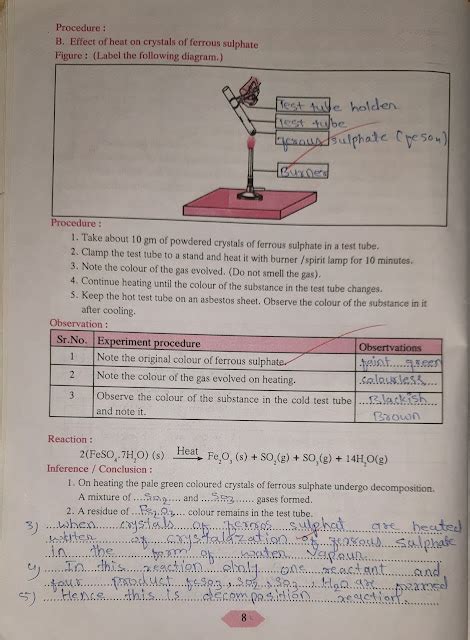 Procedure :
B. Effect of heat on crystals of ferrous sulphate
Figure : (Label the following diagram.)
Test tube holder
Test tube
ferous sulphate (feso4)
Burner
Procedure :
1. Take about 10 gm of powdered crystals of ferrous sulphate in a test tube.
2. Clamp the test tube to a stand and heat it with burner /spirit lamp for 10 minutes.
3. Note the colour of the gas evolved. (Do not smell the gas).
4. Continue heating until the colour of the substance in the test tube changes.
5. Keep the hot test tube on an asbestos sheet. Observe the colour of the substance in it
after cooling.
Observation :
Sr.No. Experiment procedure Obsertvations
1 Note the original colour of ferrous sulphate. faint green
2 Note the colour of the gas evolved on heating. colourless
3 Observe the colour of the substance in the cold test tube Blackish
and note it. Brown
Reaction :
2(FeSO4.7H2O) (s) Heat Fe2O3 (s) + SO2(g) + SO3(g) + 14H2O(g)
Inference / Conclusion :
1. On heating the pale green coloured crystals of ferrous sulphate undergo decomposition.
A mixture of So2 and So3 gases formed.
2. A residue of Fe2O3 colour remains in the test tube.
3) when crystals of ferros sulphat are heated
of crystalazation of ferrous Sulphate
in the form of water vapour.
4) In this reaction only one reactant and
four product , So2, So3, H2O are formed
5) Hence this is decomposition reaction.
8